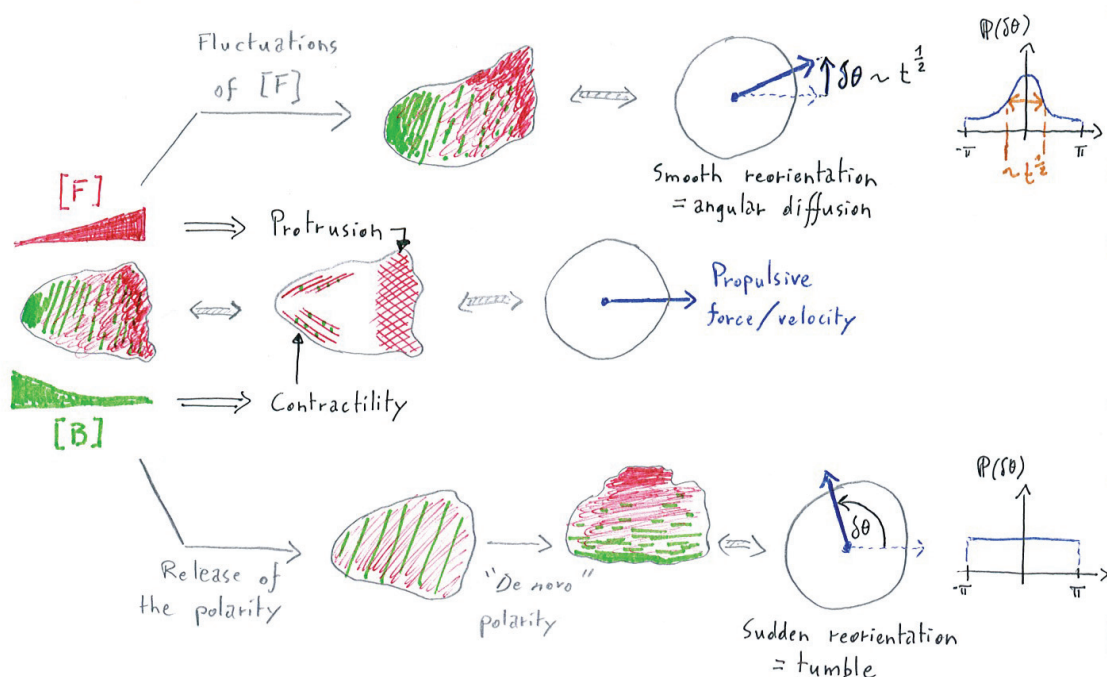 Fluctuations
of [F]
δθ ~ t^{1/2}
ℙ(δθ)
-π
π
~ t^{1/2}
Smooth reorientation
= angular diffusion
[F]
Protrusion
Propulsive
force/velocity
Contractility
[B]
Release of
the polarity
"De novo"
polarity
δθ
Sudden reorientation
= tumble
ℙ(δθ)
-π
π